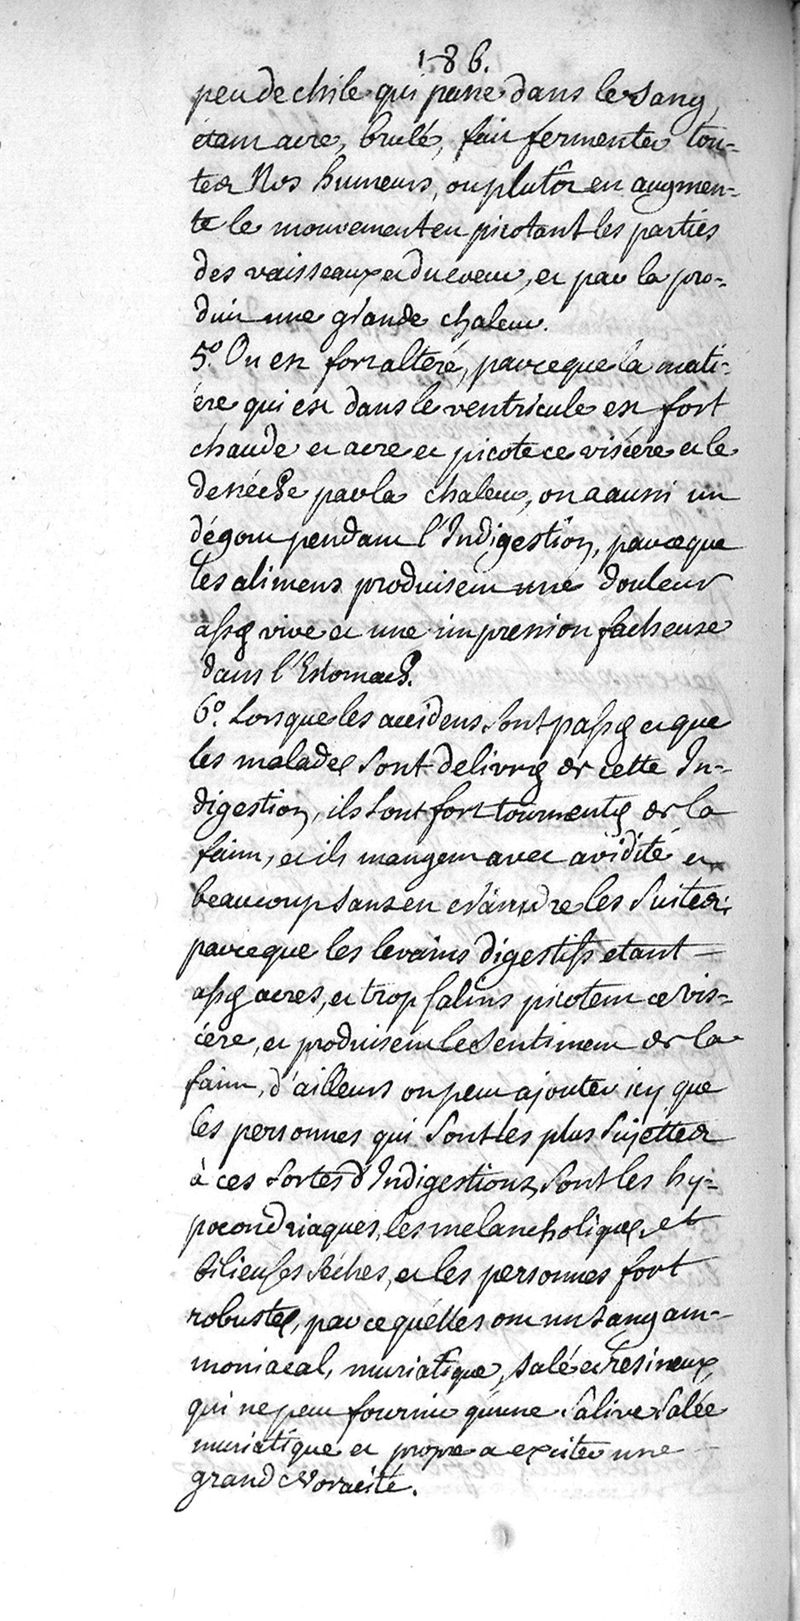 186.
peu de chile qui passe dans le sang,
étant acre, brulé, fait fermenter tou-
tes Nos humeurs, ou plutôt en augmen-
te le mouvement en picotant les parties
des vaisseaux et du coeur, et par la pro-
duit une grande chaleur.
5.° On est fort altéré, parceque la mati-
ere qui est dans le ventricule est fort
chaude et acre et picote ce viscere et le
desséche par la chaleur, on a aussi un
dégout pendant l'Indigestion, parceque
les alimens produisent une douleur
assés vive et une impression facheuse
dans l'Estomach.
6.° Lorsque les accidens sont passés et que
les malades sont delivrés de cette In-
digestion, ils sont fort tourmentés de la
faim, et ils mangent avec avidité et
beaucoup sans en craindre les suites;
parceque les levains digestifs etant
assés acres, et trop salins picotent ce vis-
cére, et produisent le sentiment de la
faim, d'ailleurs on peut ajouter icy que
les personnes qui sont les plus sujettes
à ces sortes d'Indigestions, sont les hy-
pocondriaques, les melancholiques, et
bilieuses séches, et les personnes fort
robustes, parce qu'elles ont un sang am-
moniacal, muriatique, salé et resineux,
qui ne peut fournir qu'une sâlive salée
muriatique et propre a exciter une
grande Voracité.